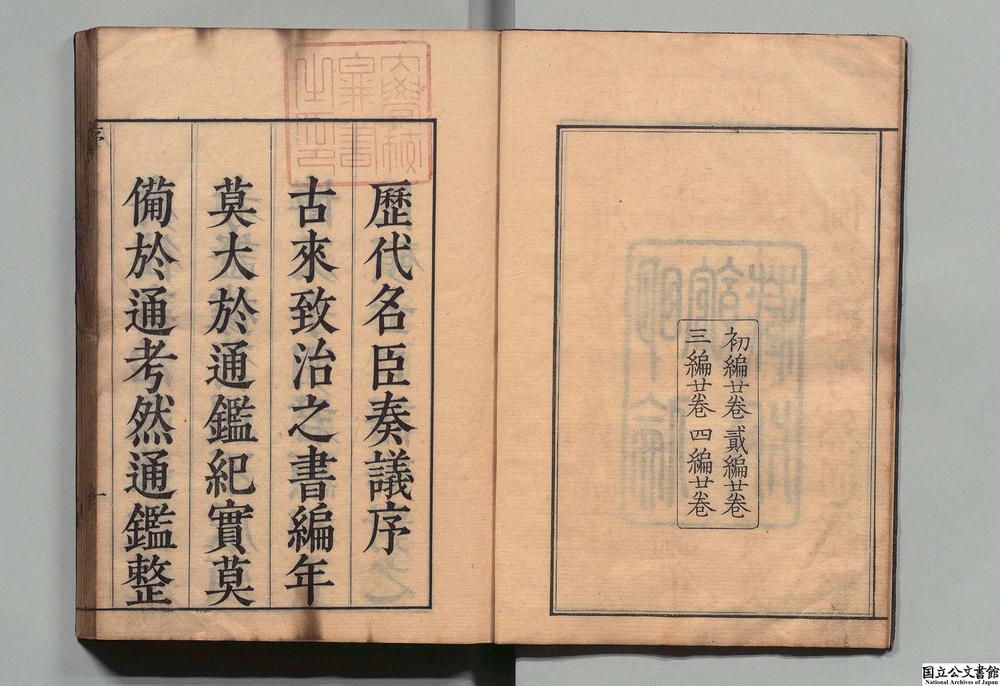 初編廿卷 貳編廿卷
三編廿卷 四編廿卷
歷代名臣奏議序
古來致治之書編年
莫大於通鑑紀實莫
備於通考然通鑑整
序
一
国立公文書館
National Archives of Japan